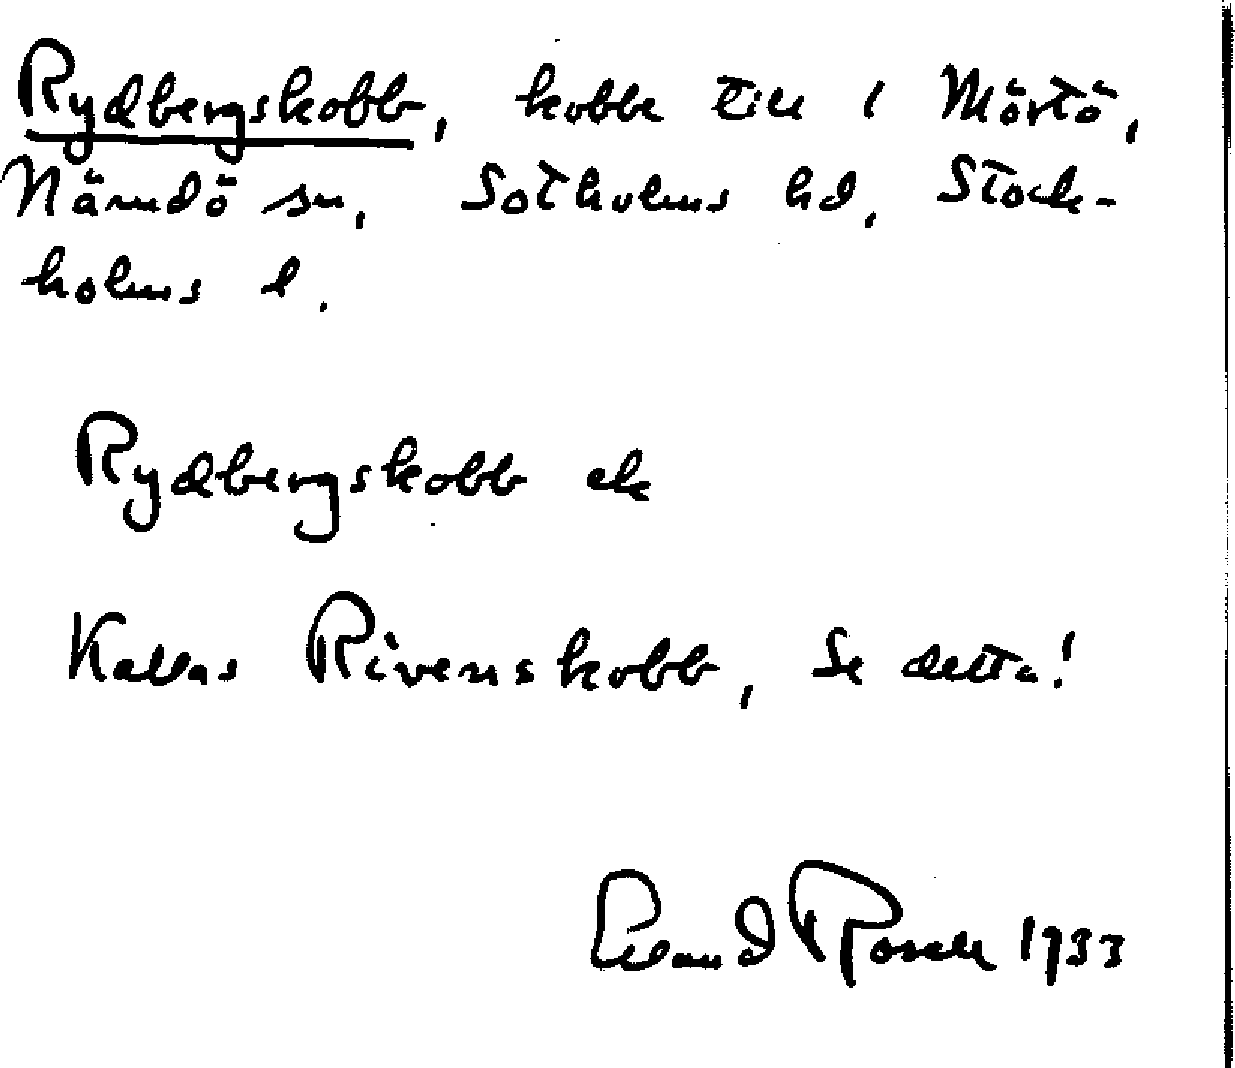 Rydbergskobb, kobbe till 1 Mörtö,
Nämdö sn, Sotholms hd, Stock-
holms l.
Rydbergskobb ek
Kallas Rivenskobb, Se detta!
Rosell 1933